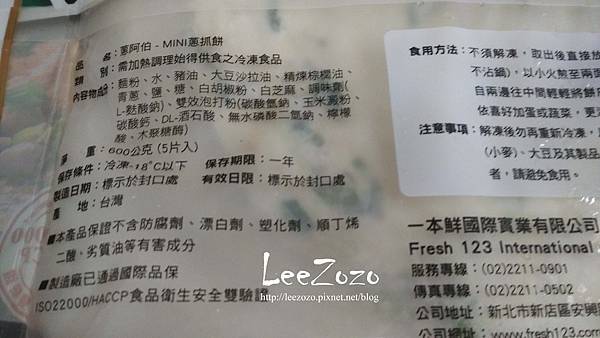 品　　名：蔥阿伯 - MINI蔥抓餅
類　　別：需加熱調理始得供食之冷凍食品
內容物成分：麵粉、水、豬油、大豆沙拉油、精煉棕櫚油、
青蔥、鹽、糖、白胡椒粉、白芝麻、調味劑(
L-麩酸鈉)、雙效泡打粉(碳酸氫鈉、玉米澱粉、
碳酸鈣、DL-酒石酸、無水磷酸二氫鈉、檸檬
酸、木聚糖醇)
淨　　重：600公克(5片入)
保存條件：冷凍-18℃以下　保存期限：一年
製造日期：標示於封口處　有效日限：標示於封口處
產　　地：台灣
■本產品保證不含防腐劑、漂白劑、塑化劑、順丁烯
二酸、劣質油等有害成分
■製造廠已通過國際品保
ISO22000/HACCP食品衛生安全雙驗證
食用方法：不須解凍，取出後直接放
不沾鍋)，以小火煎至兩面
自兩邊往中間輕輕將餅
依喜好加蛋或蔬菜，更
注意事項：解凍後勿再重新冷凍，
(小麥)、大豆及其製品
者，請避免食用。
一本鮮國際實業有限公司
Fresh 123 International
服務專線：(02)2211-0901
傳真專線：(02)2211-0502
公司地址：新北市新店區安興
公司網址：www.fresh123.com
LeeZozo
http://leezozo.pixnet.net/blog